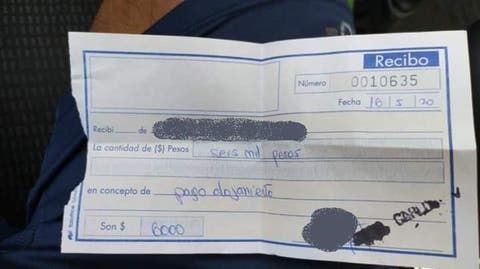 Recibo
Número 0010635
Fecha 18 / 5 / 20
Recibí de
La cantidad de ($) Pesos seis mil pesos
en concepto de pago alojamiento
Son $ 6000